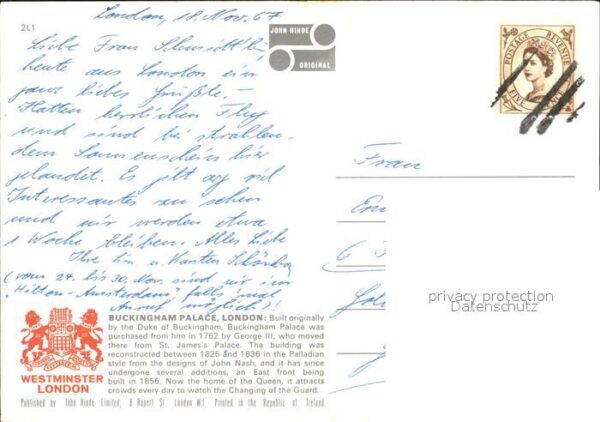 London, 18. Nov. 67
2L1
JOHN HINDE
ORIGINAL
POSTAGE REVENUE
FIVE PENCE
Liebe Frau Schmidt
heute aus London ein
ganz liebes Grüßle. —
Hatten herrlichen Flug
und sind bei strahlen-
dem Sonnenschein hier
gelandet. Es gibt arg viel
Interessantes zu sehen
und wir werden etwa
1 Woche bleiben. Alles Liebe
Ihre
(vom 24. bis 30. Nov. sind wir im
"Hilton-Amsterdam" falls mal
Anruf möglich)!
Frau
privacy protection
Datenschutz
WESTMINSTER
LONDON
BUCKINGHAM PALACE, LONDON: Built originally
by the Duke of Buckingham, Buckingham Palace was
purchased from him in 1762 by George III, who moved
there from St. James's Palace. The building was
reconstructed between 1825 and 1836 in the Palladian
style from the designs of John Nash, and it has since
undergone several additions, an East front being
built in 1856. Now the home of the Queen, it attracts
crowds every day to watch the Changing of the Guard.
Published by John Hinde Limited, 6 Rupert St. London W1 Printed in the Republic of Ireland.